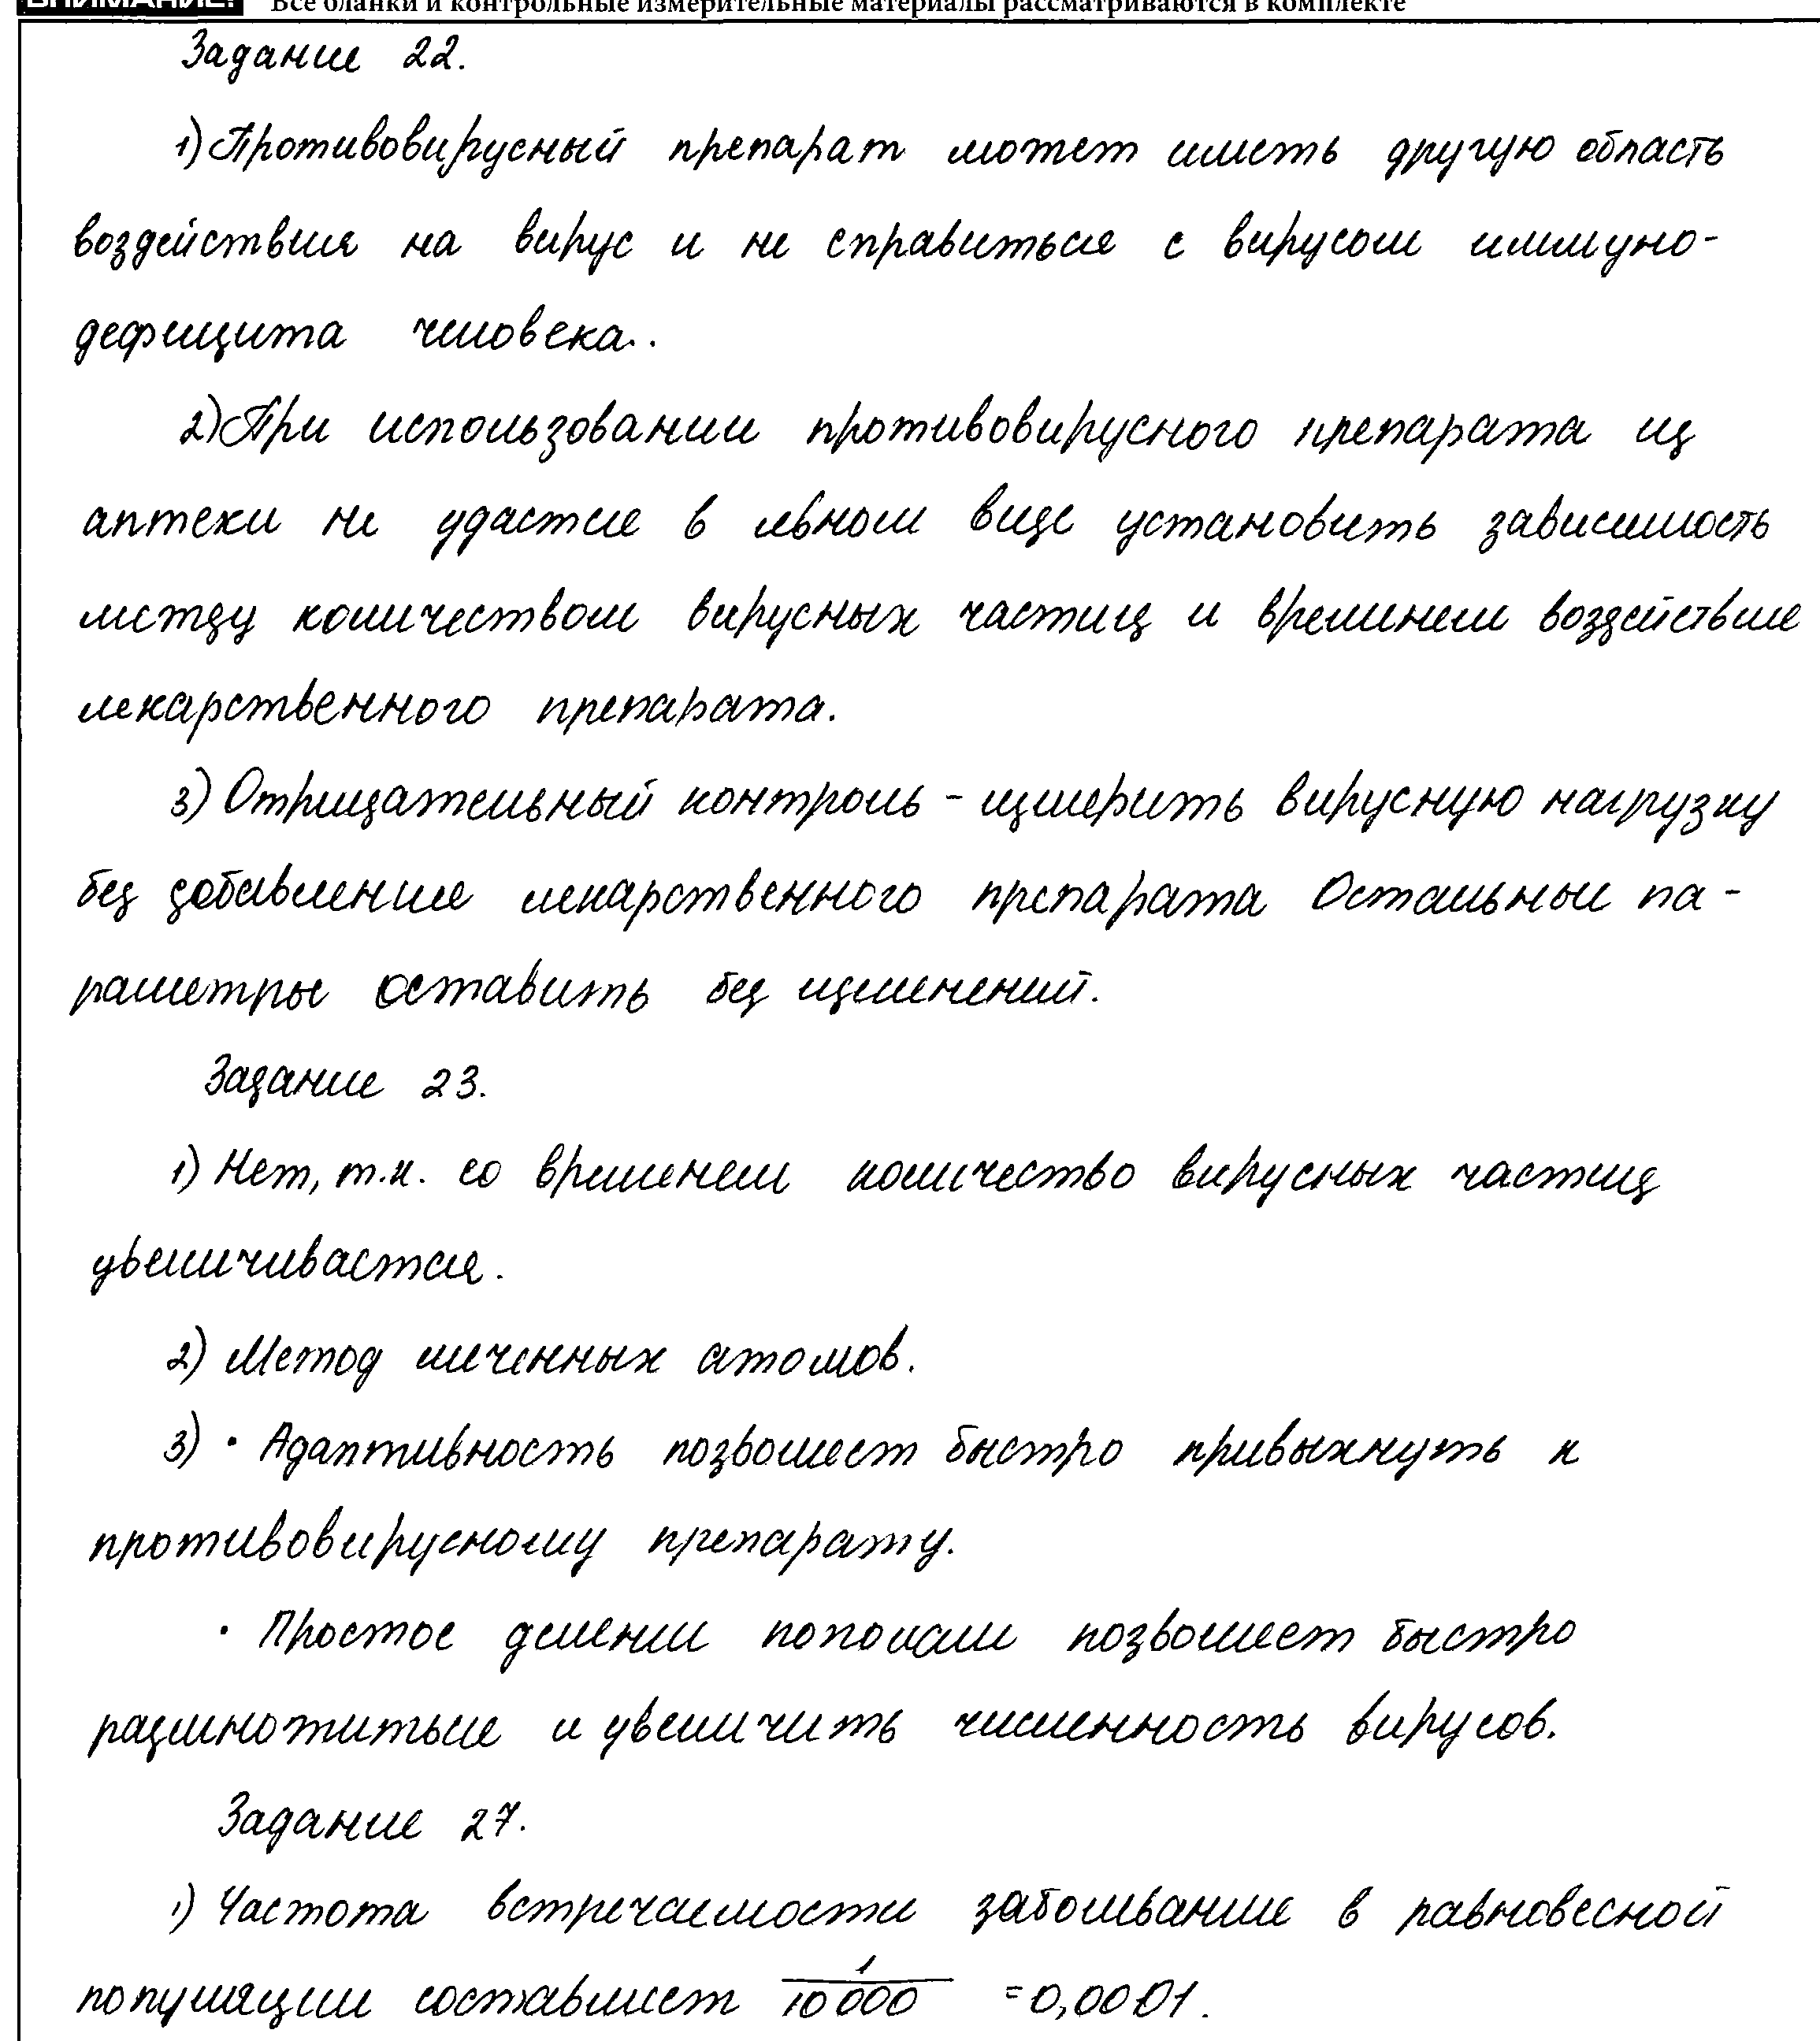 ВНИМАНИЕ! Все бланки и контрольные измерительные материалы рассматриваются в комплекте
Задание 22.
1) Противовирусный препарат может иметь другую область
воздействия на вирус и не справиться с вирусом иммуно-
дефицита человека..
2) При использовании противовирусного препарата из
аптеки не удастся в явном виде установить зависимость
между количеством вирусных частиц и временем воздействия
лекарственного препарата.
3) Отрицательный контроль - измерить вирусную нагрузку
без добавления лекарственного препарата Остальные па-
раметры оставить без изменений.
Задание 23.
1) Нет, т.к. со временем количество вирусных частиц
увеличивается.
2) Метод меченных атомов.
3) • Адаптивность позволяет быстро привыкнуть к
противовирусному препарату.
• Простое деление пополам позволяет быстро
размножиться и увеличить численность вирусов.
Задание 27.
1) Частота встречаемости заболевания в равновесной
популяции составляет 1/10000 = 0,0001.